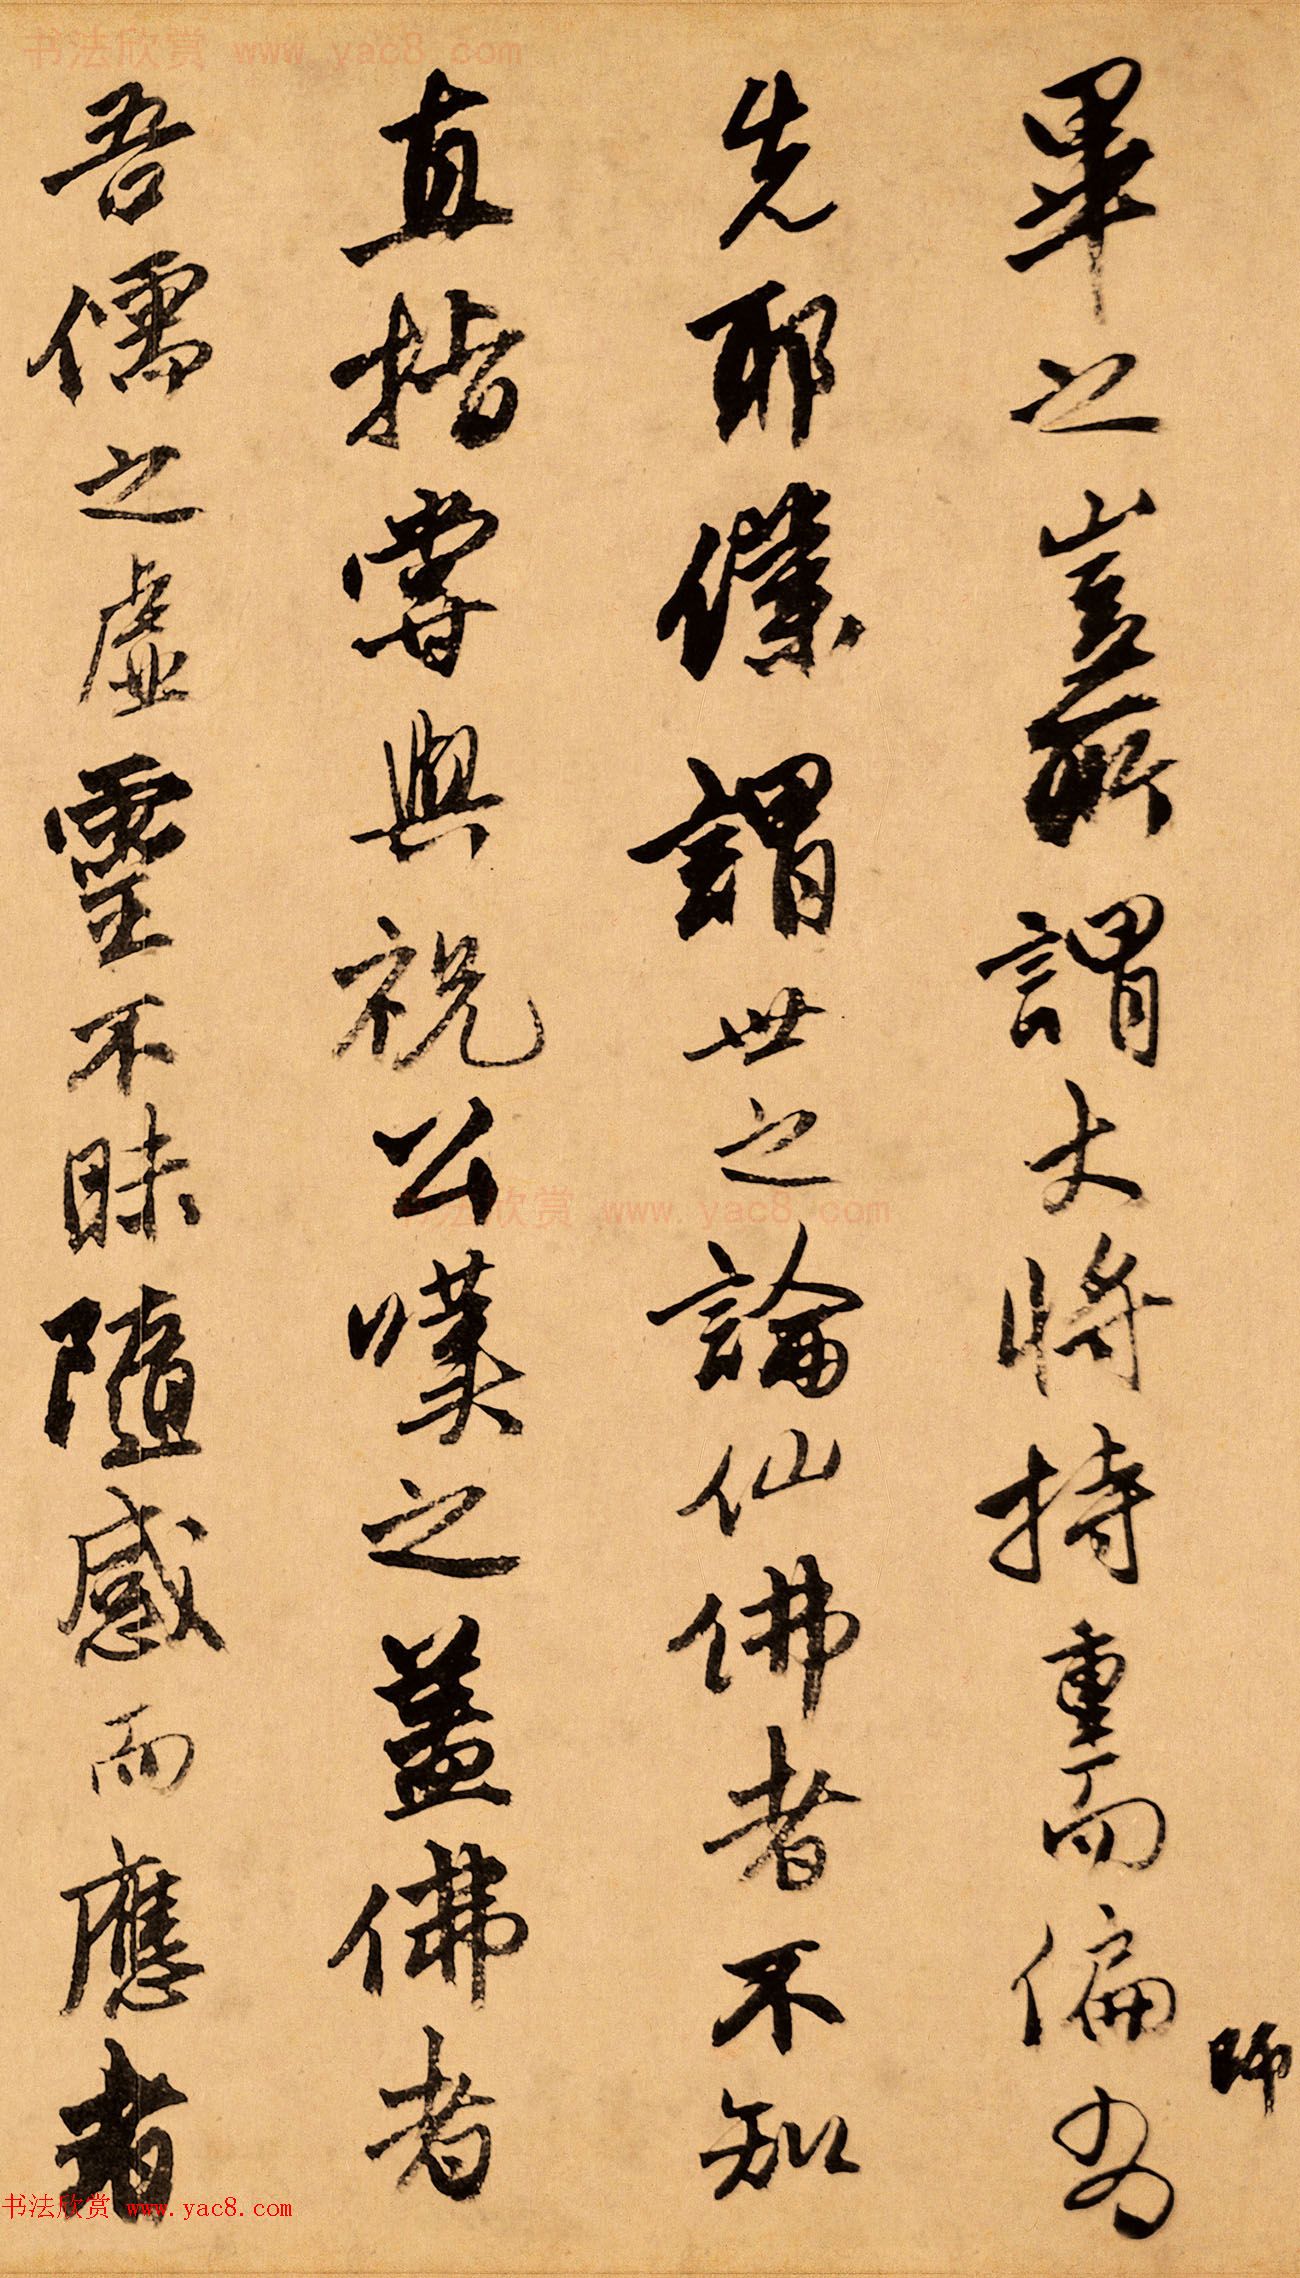 書法欣赏 www.yac8.com
畢之豈所謂大將持重而偏為
師
先耶僕謂世之論仙佛者不知
直指嘗與祝公嘆之蓋佛者
吾儒之虛靈不昧隨感而應者
书法欣赏 www.yac8.com
书法欣赏 www.yac8.com